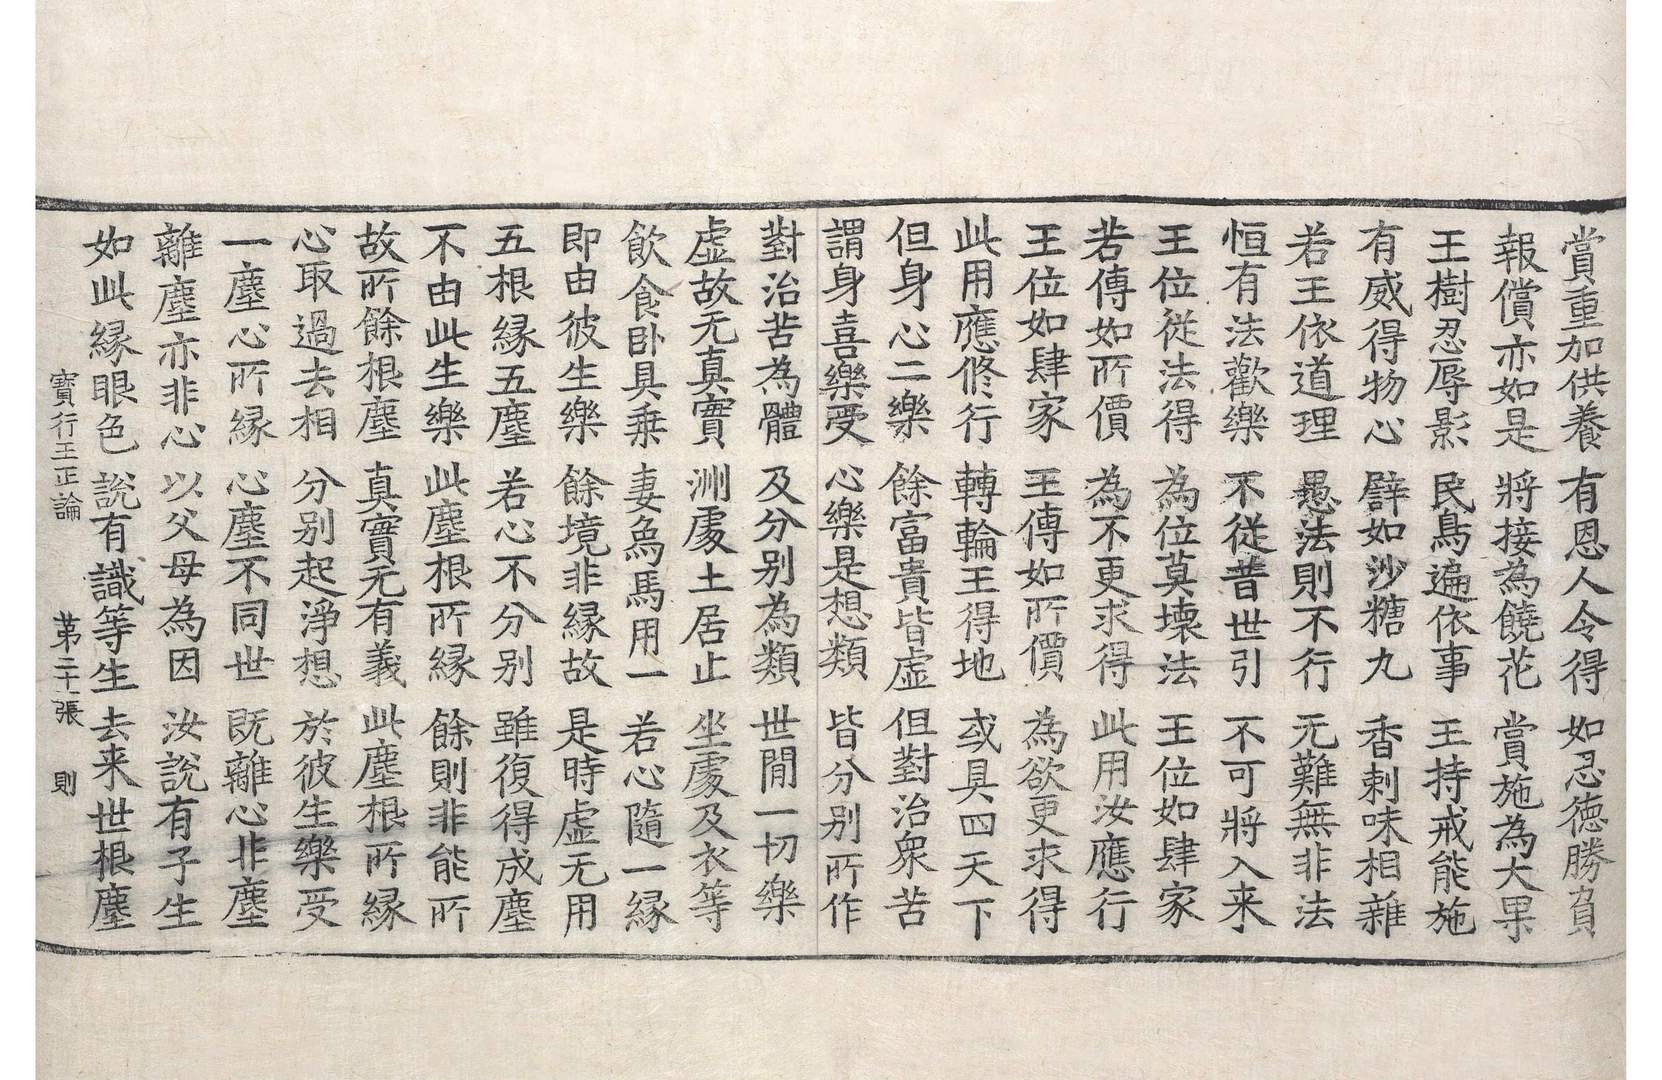 賞重加供養 有恩人令得 如忍德勝負
報償亦如是 將接為饒花 賞施為大果
王樹忍辱影 民鳥遍依事 王持戒能施
有威得物心 譬如沙糖丸 香剌味相雜
若王依道理 愚法則不行 无難無非法
恒有法歡樂 不從昔世引 不可將入来
王位從法得 為位莫壞法 王位如肆家
若傳如所價 為不更求得 此用汝應行
王位如肆家 王傳如所價 為欲更求得
此用應修行 轉輪王得地 或具四天下
但身心二樂 餘富貴皆虛 但對治衆苦
謂身喜樂受 心樂是想類 皆分別所作
對治苦為體 及分別為類 世間一切樂
虛故无真實 洲處土居止 坐處及衣等
飲食卧具乗 妻爲馬用一 若心隨一縁
即由彼生樂 餘境非縁故 是時虛无用
五根縁五塵 若心不分別 雖復得成塵
不由此生樂 此塵根所縁 餘則非能所
故所餘根塵 真實无有義 此塵根所縁
心取過去相 分別起淨想 於彼生樂受
一塵心所縁 心塵不同世 既離心非塵
離塵亦非心 以父母為因 汝說有子生
如此縁眼色 說有識等生 去来世根塵
寶行王正論 苐二十張 則